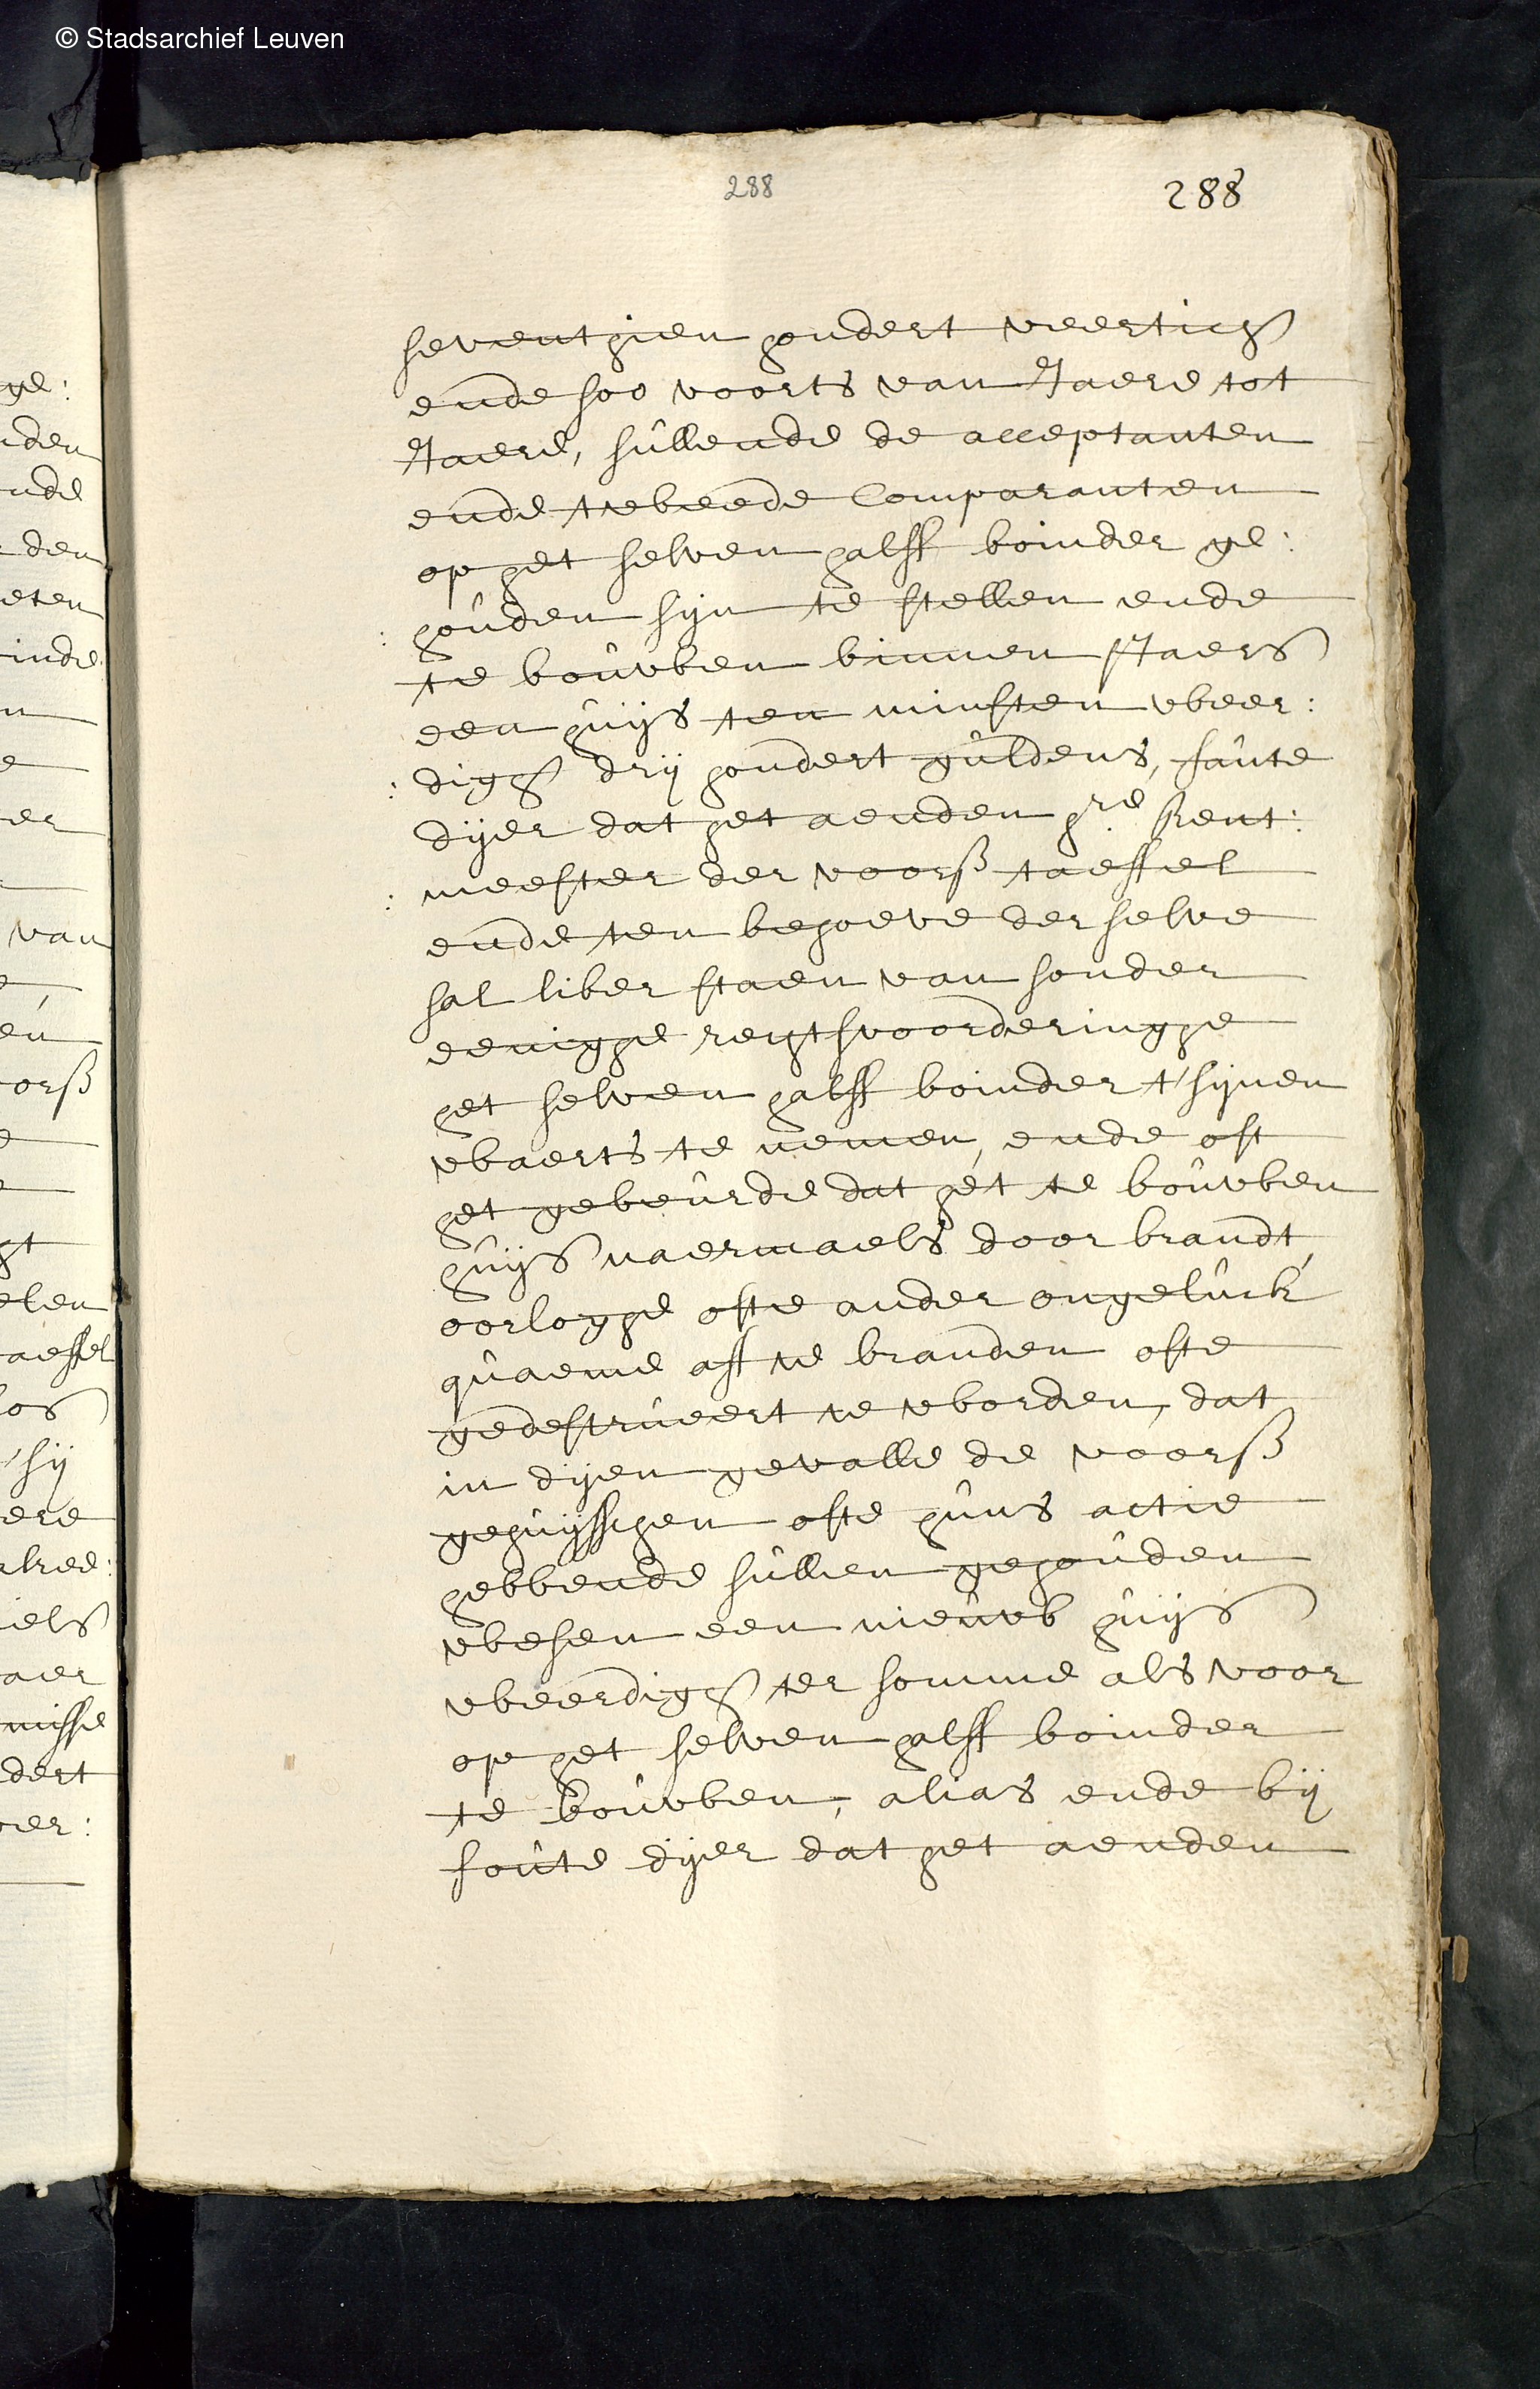 © Stadsarchief Leuven
288
288
seventhien hondert veertich
ende soo voorts van Jaere tot
Jaere, sullende de acceptanten
ende tweede Comparanten
op het selven halff boinder ge:
: houden sijn te stellen ende
te bouwen binnen sJaers
een huijs ten minsten weer:
: digh drij hondert guldens, faute
dijer dat het aenden hre Rent:
: meester der voorß taeffel
ende ten behoeve der selve
sal liber staen van sonder
eenighe rechtsvoorderinghe
het selven halff boinder t'sijnen
waerts te nemen, ende oft
het gebeurde dat het te bouwen
huijs naermaels door brandt,
oorloghe ofte ander ongeluck
quaeme aff te branden ofte
gedestrueert te worden, dat
in dijen gevalle de voorß
gehuijsschen ofte huns actie
hebbende sullen gehouden
wesen een nieuw huijs
weerdigh ter somme als voor
op het selven halff boinder
te bouwen, alias ende bij
foute dijer dat het aenden